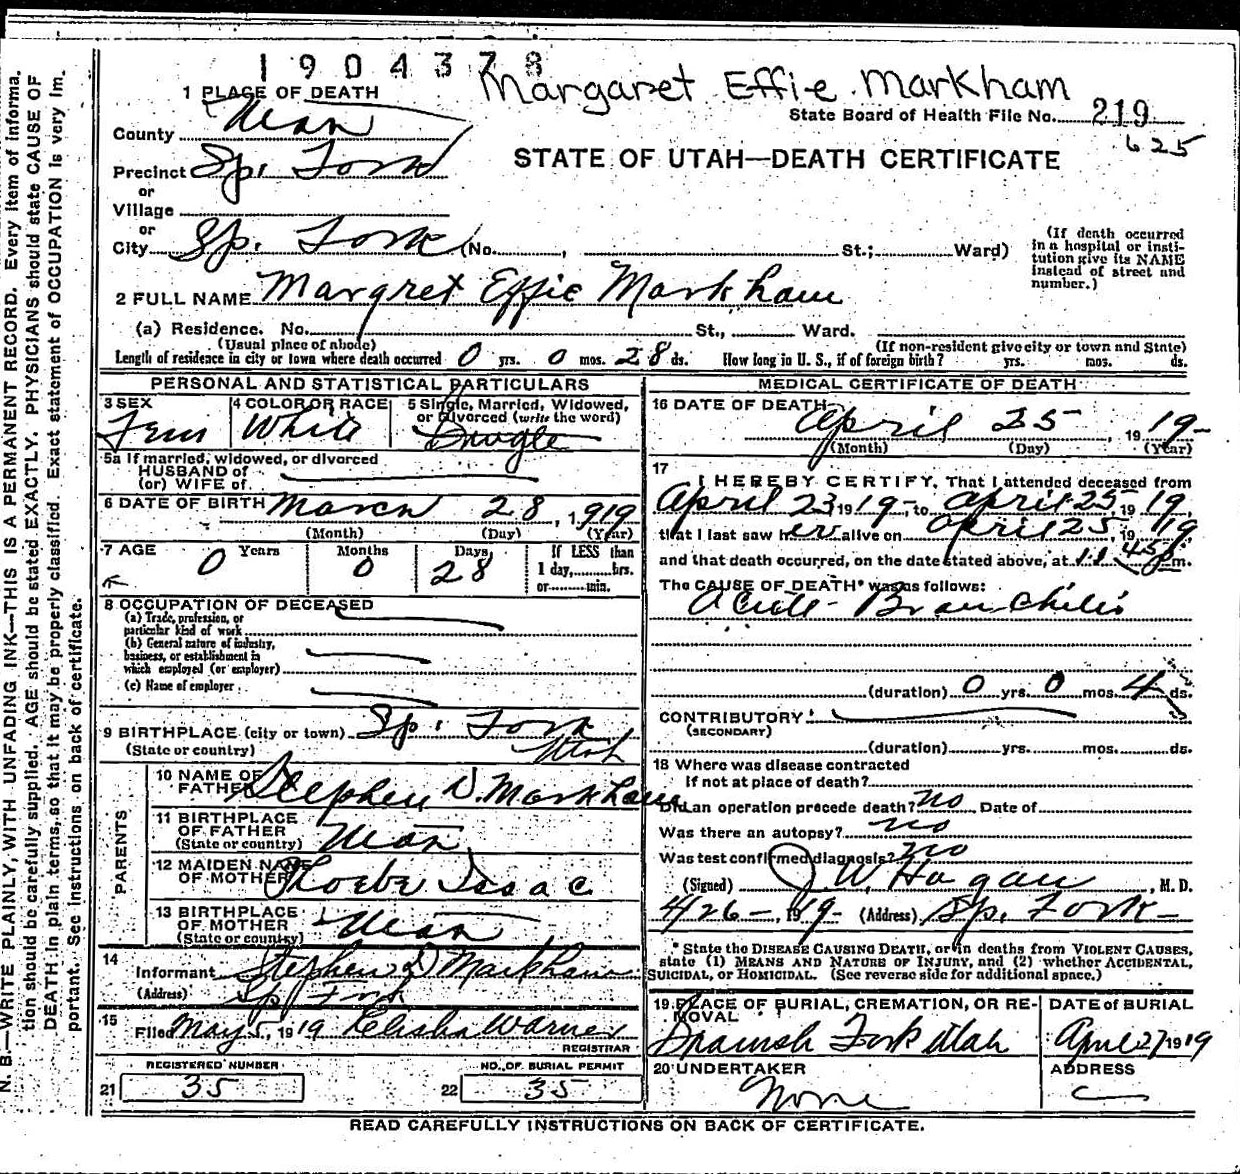 1904378
Margaret Effie Markham
1 PLACE OF DEATH
State Board of Health File No. 219
625
County Utah
STATE OF UTAH—DEATH CERTIFICATE
Precinct Sp. Fork
or
Village
or
City Sp. Fork (No. , St.; Ward)
(If death occurred in a hospital or insti-
tution give its NAME
instead of street and
number.)
2 FULL NAME Margret Effie Markham
(a) Residence. No. St., Ward.
(Usual place of abode) (If non-resident give city or town and State)
Length of residence in city or town where death occurred 0 yrs. 0 mos. 28 ds. How long in U. S., if of foreign birth? yrs. mos. ds.
PERSONAL AND STATISTICAL PARTICULARS
3 SEX Fem
4 COLOR OR RACE White
5 Single, Married, Widowed,
or Divorced (write the word)
Single
5a If married, widowed, or divorced
HUSBAND of
(or) WIFE of
6 DATE OF BIRTH March 28, 1919
(Month) (Day) (Year)
7 AGE 0 Years 0 Months 28 Days
If LESS than
1 day, hrs.
or min.
8 OCCUPATION OF DECEASED
(a) Trade, profession, or
particular kind of work
(b) General nature of industry,
business, or establishment in
which employed (or employer)
(c) Name of employer
9 BIRTHPLACE (city or town) Sp. Fork
(State or country) Utah
PARENTS
10 NAME OF
FATHER Stephen D. Markham
11 BIRTHPLACE
OF FATHER
(State or country) Utah
12 MAIDEN NAME
OF MOTHER Phoebe Isaac
13 BIRTHPLACE
OF MOTHER
(State or country) Utah
14
Informant Stephen D Markham
(Address) Sp Fork
15
Filed May 5, 1919 Elisha Warner
REGISTRAR
REGISTERED NUMBER
21 35
NO. OF BURIAL PERMIT
22 35
MEDICAL CERTIFICATE OF DEATH
16 DATE OF DEATH
April 25, 1919-
(Month) (Day) (Year)
17
I HEREBY CERTIFY, That I attended deceased from
April 23 1919, to April 25, 1919,
that I last saw her alive on April 25, 1919
and that death occurred, on the date stated above, at 11 45 p m.
The CAUSE OF DEATH* was as follows:
Acute Bronchitis
(duration) 0 yrs. 0 mos. 4 ds.
CONTRIBUTORY
(SECONDARY)
(duration) yrs. mos. ds.
18 Where was disease contracted
If not at place of death?
Did an operation precede death? no Date of
Was there an autopsy? no
Was test confirmed diagnosis? no
(Signed) J W. Hagan, M. D.
4/26-, 1919- (Address) Sp. Fork-
* State the DISEASE CAUSING DEATH, or in deaths from VIOLENT CAUSES,
state (1) MEANS AND NATURE OF INJURY, and (2) whether ACCIDENTAL,
SUICIDAL, or HOMICIDAL. (See reverse side for additional space.)
19 PLACE OF BURIAL, CREMATION, OR RE-
MOVAL
Spanish Fork Utah
DATE OF BURIAL
April 27 1919
20 UNDERTAKER
None
ADDRESS
READ CAREFULLY INSTRUCTIONS ON BACK OF CERTIFICATE.
N. B.—WRITE PLAINLY, WITH UNFADING INK—THIS IS A PERMANENT RECORD. Every item of informa-
tion should be carefully supplied. AGE should be stated EXACTLY. PHYSICIANS should state CAUSE OF
DEATH in plain terms, so that it may be properly classified. Exact statement of OCCUPATION is very im-
portant. See instructions on back of certificate.